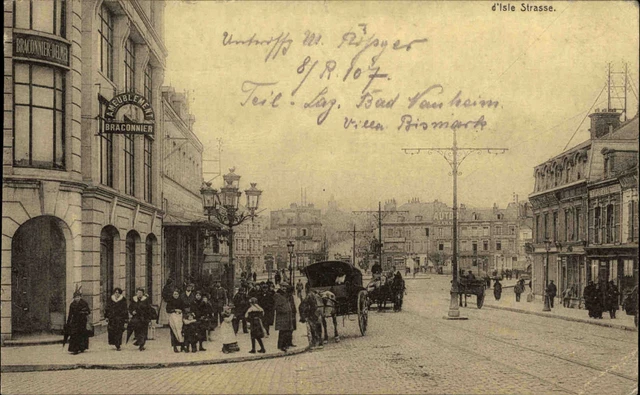 d'Isle Strasse.
Unteroffz. M. Rößger
8/R. 107.
Teil. Laz. Bad Nauheim.
Villa Bismark
BRACONNIER-DELBER
AMEUBLEMENT
BRACONNIER
AUTO